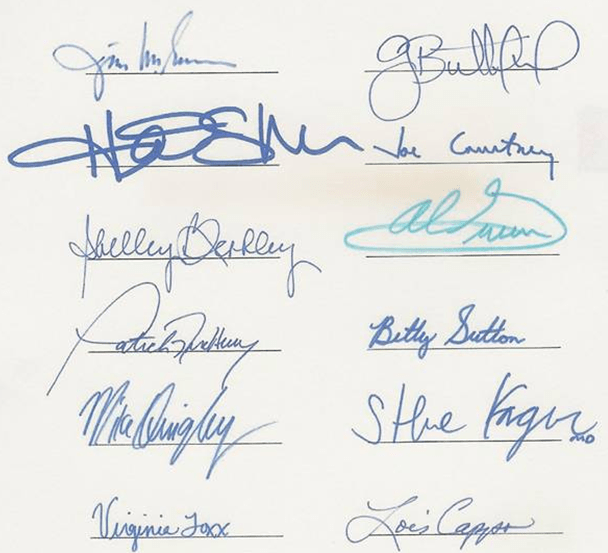 Jim
Joe Courtney
Shelley Berkley Al Green
Patrick McHenry Betty Sutton
Mike Quigley Steve Kagen MD
Virginia Foxx Lois Capps